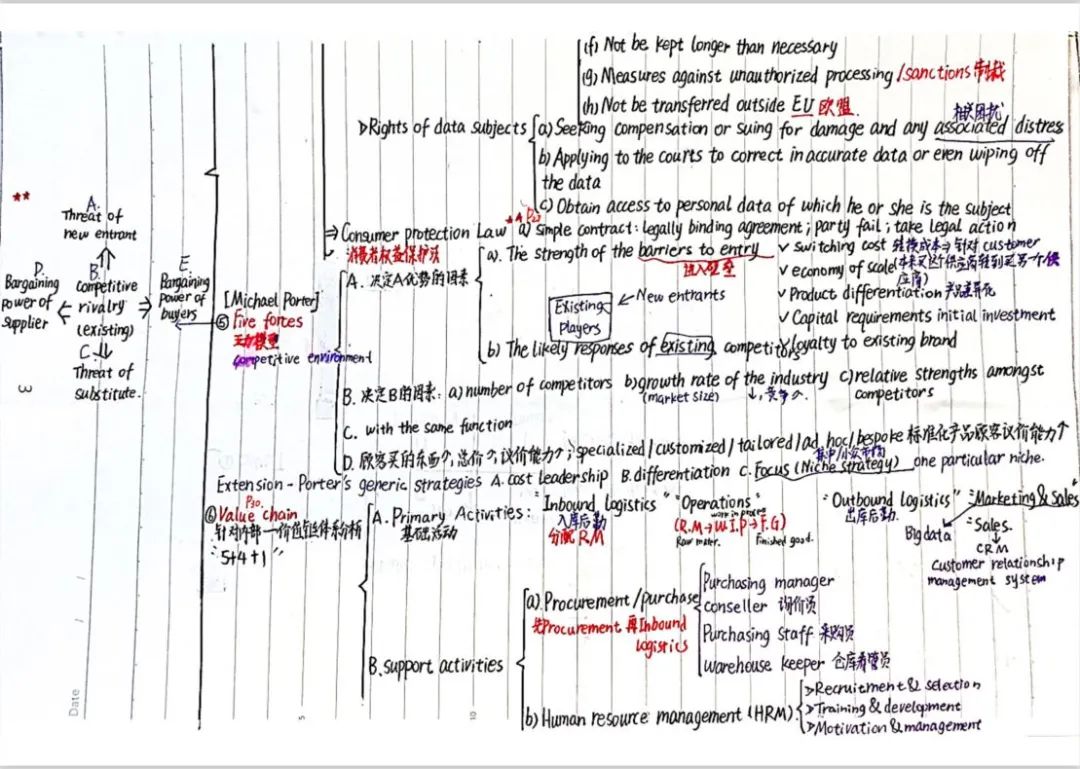 (f) Not be kept longer than necessary
(g) Measures against unauthorized processing /sanctions 制裁
(h) Not be transferred outside EU 欧盟.
相关困扰
▷Rights of data subjects
a) Seeking compensation or suing for damage and any associated distress
b) Applying to the courts to correct in accurate data or even wiping off
the data
c) Obtain access to personal data of which he or she is the subject
⇒ Consumer protection Law
消费者权益保护法
a) simple contract: legally binding agreement; party fail; take legal action
**
A.
Threat of
new entrant
D.
Bargaining
power of
supplier
B.
competitive
rivalry
(existing)
E
Bargaining
power of
buyers
C.
Threat of
substitute.
3
[Michael Porter]
⑤ Five forces
五力模型
competitive environment
A. 决定A优势的因素
a). The strength of the barriers to entry
进入壁垒
✓ switching cost 转换成本⇒针对customer
✓ economy of scale
✓ Product differentiation 产品差异化
✓ Capital requirements initial investment
✓ loyalty to existing brand
Existing
Players
← New entrants
b) The likely responses of existing competitors
B. 决定B的因素: a) number of competitors b) growth rate of the industry c) relative strengths amongst
(market size) ↓, 竞争↑.
competitors
C. with the same function
D. 顾客买的东西↑, 总价↑, 议价能力↑; specialized/customized/tailored/ad hoc/bespoke 标准化产品顾客议价能力↑
Extension - Porter's generic strategies A. cost leadership B. differentiation C. Focus (Niche strategy) one particular niche.
P30.
⑥ Value chain
"5+4+1"
A. Primary Activities:
基础活动
"Inbound logistics"
入库后勤
分配RM
"Operations"
work in process
(R.M→W.I.P→F.G)
Raw mater. Finished good.
"Outbound logistics"
出库后勤.
"Marketing & Sales"
Big data
"Sales.
↓
CRM
Customer relationship
management system
B. support activities
a). Procurement/purchase
先Procurement 再Inbound
logistics
Purchasing manager
conseller 询价员
Purchasing staff 采购员
warehouse keeper 仓库看管员
b) Human resource management (HRM):
▷Recruitment & selection
▷Training & development
▷Motivation & management
Date / /
5
10